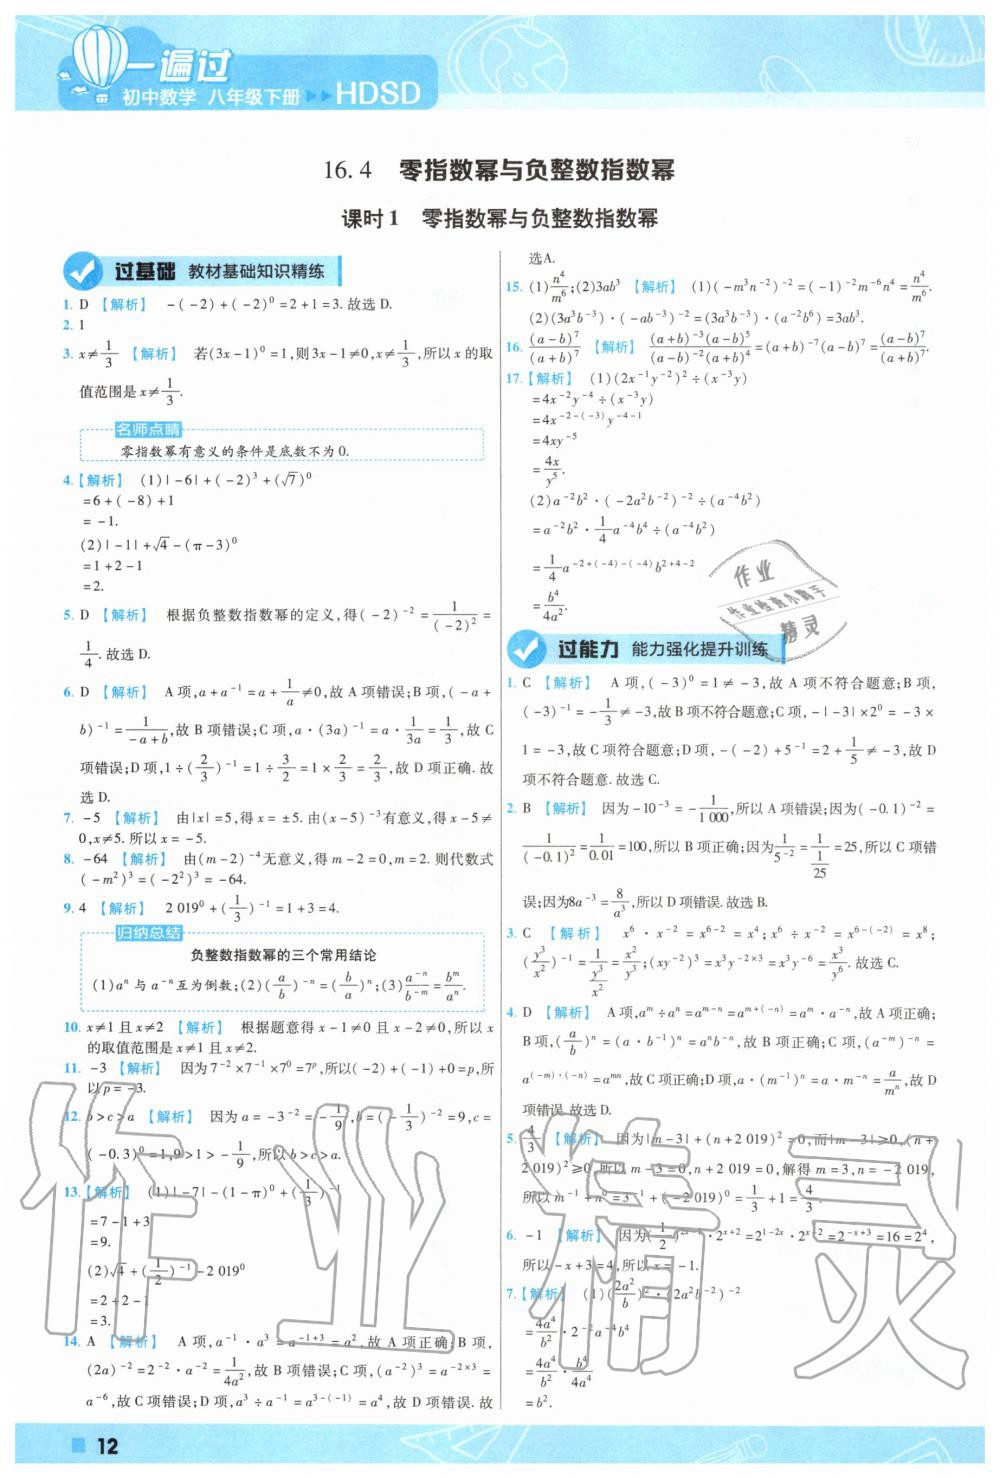 一遍过
初中数学 八年级下册 ▶▶ HDSD
16.4 零指数幂与负整数指数幂
课时1 零指数幂与负整数指数幂
过基础 教材基础知识精练
1. D 【解析】 -(-2)+(-2)⁰=2+1=3.故选 D.
2. 1
3. x≠1/3 【解析】 若(3x-1)⁰=1,则3x-1≠0,x≠1/3,所以x的取
值范围是x≠1/3.
名师点睛
零指数幂有意义的条件是底数不为0.
4.【解析】 (1)|-6|+(-2)³+(√7)⁰
=6+(-8)+1
=-1.
(2)|-1|+√4-(π-3)⁰
=1+2-1
=2.
5. D 【解析】 根据负整数指数幂的定义,得(-2)⁻²=1/(-2)²=
1/4.故选 D.
6. D 【解析】 A项,a+a⁻¹=a+1/a≠0,故A项错误;B项,(-a+
b)⁻¹=1/(-a+b),故B项错误;C项,a·(3a)⁻¹=a·1/3a=1/3,故C
项错误;D项,1÷(2/3)⁻¹=1÷3/2=1×2/3=2/3,故D项正确.故
选D.
7. -5 【解析】 由|x|=5,得x=±5.由(x-5)⁻³有意义,得x-5≠
0,x≠5.所以x=-5.
8. -64 【解析】 由(m-2)⁻⁴无意义,得m-2=0,m=2.则代数式
(-m²)³=(-2²)³=-64.
9. 4 【解析】 2 019⁰+(1/3)⁻¹=1+3=4.
归纳总结
负整数指数幂的三个常用结论
(1)aⁿ与a⁻ⁿ互为倒数;(2)(a/b)⁻ⁿ=(b/a)ⁿ;(3)a⁻ⁿ/b⁻ᵐ=bᵐ/aⁿ.
10. x≠1且x≠2 【解析】 根据题意得x-1≠0且x-2≠0,所以x
的取值范围是x≠1且x≠2.
11. -3 【解析】 因为7⁻²×7⁻¹×7⁰=7ᵖ,所以(-2)+(-1)+0=p,所
以p=-3.
12. b>c>a 【解析】 因为a=-3⁻²=-1/9,b=(-1/3)⁻²=9,c=
(-0.3)⁰=1,9>1>-1/9,所以b>c>a.
13.【解析】 (1)|-7|-(1-π)⁰+(1/3)⁻¹
=7-1+3
=9.
(2)√4+(1/2)⁻¹-2 019⁰
=2+2-1
=3.
14. A 【解析】 A项,a⁻¹·a³=a⁻¹⁺³=a²,故A项正确;B项,
(2a)⁻²=2⁻²·a⁻²=1/4a²,故B项错误;C项,(a⁻²)³=a⁻²ˣ³=
a⁻⁶,故C项错误;D项,a³÷a⁻¹=a³⁻⁽⁻¹⁾=a⁴,故D项错误.故
选A.
15. (1)n⁴/m⁶;(2)3ab³ 【解析】 (1)(-m³n⁻²)⁻²=(-1)⁻²m⁻⁶n⁴=n⁴/m⁶.
(2)(3a³b⁻³)·(-ab⁻³)⁻²=(3a³b⁻³)·(a⁻²b⁶)=3ab³.
16. (a-b)⁷/(a+b)⁷ 【解析】 (a+b)⁻³(a-b)⁵/(a-b)⁻²(a+b)⁴=(a+b)⁻⁷(a-b)⁷=(a-b)⁷/(a+b)⁷.
17.【解析】 (1)(2x⁻¹y⁻²)²÷(x⁻³y)
=4x⁻²y⁻⁴÷(x⁻³y)
=4x⁻²⁻⁽⁻³⁾y⁻⁴⁻¹
=4xy⁻⁵
=4x/y⁵.
(2)a⁻²b²·(-2a²b⁻²)⁻²÷(a⁻⁴b²)
=a⁻²b²·1/4a⁻⁴b⁴÷(a⁻⁴b²)
=1/4a⁻²⁺⁽⁻⁴⁾⁻⁽⁻⁴⁾b²⁺⁴⁻²
=b⁴/4a².
过能力 能力强化提升训练
1. C 【解析】 A项,(-3)⁰=1≠-3,故A项不符合题意;B项,
(-3)⁻¹=-1/3≠-3,故B项不符合题意;C项,-|-3|×2⁰=-3×
1=-3,故C项符合题意;D项,-(-2)+5⁻¹=2+1/5≠-3,故D
项不符合题意.故选C.
2. B 【解析】 因为-10⁻³=-1/1 000,所以A项错误;因为(-0.1)⁻²=
1/(-0.1)²=1/0.01=100,所以B项正确;因为1/5⁻²=1/(1/25)=25,所以C项错
误;因为8a⁻³=8/a³,所以D项错误.故选B.
3. C 【解析】 x⁶·x⁻²=x⁶⁻²=x⁴;x⁶÷x⁻²=x⁶⁻⁽⁻²⁾=x⁸;
(y³/x²)⁻¹=1/(y³/x²)=x²/y³;(xy⁻²)³=x³y⁻²ˣ³=x³y⁻⁶=x³/y⁶.故选C.
4. D 【解析】 A项,aᵐ÷aⁿ=aᵐ⁻ⁿ=aᵐ⁺⁽⁻ⁿ⁾=aᵐ·a⁻ⁿ,故A项正确;
B项,(a/b)ⁿ=(a·b⁻¹)ⁿ=aⁿb⁻ⁿ,故B项正确;C项,(a⁻ᵐ)⁻ⁿ=
a⁽⁻ᵐ⁾·⁽⁻ⁿ⁾=aᵐⁿ,故C项正确;D项,a·(m⁻¹)ⁿ=a·m⁻ⁿ=a/mⁿ,故D
项错误.故选D.
5. 4/3 【解析】 因为|m-3|+(n+2 019)²=0,而|m-3|≥0,(n+
2 019)²≥0,所以m-3=0,n+2 019=0,解得m=3,n=-2 019,
所以m⁻¹+n⁰=3⁻¹+(-2 019)⁰=1/3+1=4/3.
6. -1 【解析】 因为(1/2)²ˣ⁻¹·2ˣ⁺²=2¹⁻²ˣ·2ˣ⁺²=2⁻ˣ⁺³=16=2⁴,
所以-x+3=4,所以x=-1.
7.【解析】 (1)(2a²/b)²·(2a²b⁻²)⁻²
=4a⁴/b²·2⁻²a⁻⁴b⁴
=4a⁴/b²·b⁴/4a⁴
=b².
作业
作业检查小助手
精灵
作业精灵
12